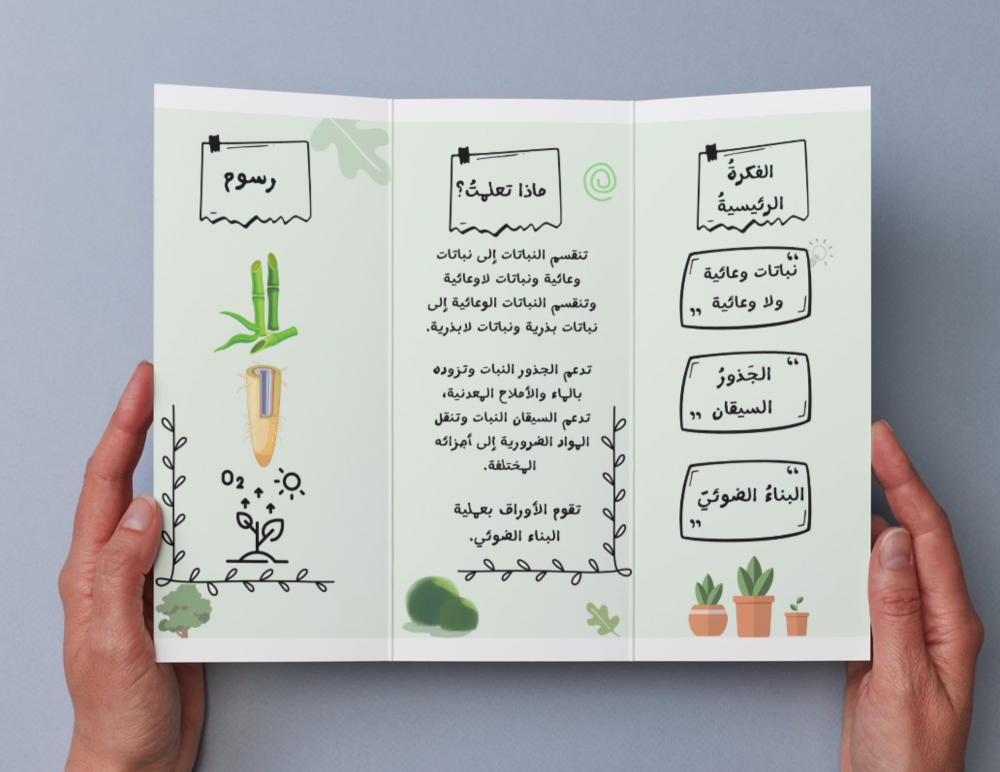 الفكرةُ
الرئيسيةُ
نباتات وعائية
ولا وعائية
الجَذورُ
السيقان
البناءُ الضوئيّ
ماذا تعلمتُ؟
تنقسم النباتات إلى نباتات
وعائية ونباتات لاوعائية
وتنقسم النباتات الوعائية إلى
نباتات بذرية ونباتات لابذرية.
تدعم الجذور النبات وتزوده
بالماء والأملاح المعدنية،
تدعم السيقان النبات وتنقل
المواد الضرورية إلى أجزائه
المختلفة.
تقوم الأوراق بعملية
البناء الضوئي.
رسوم
O2